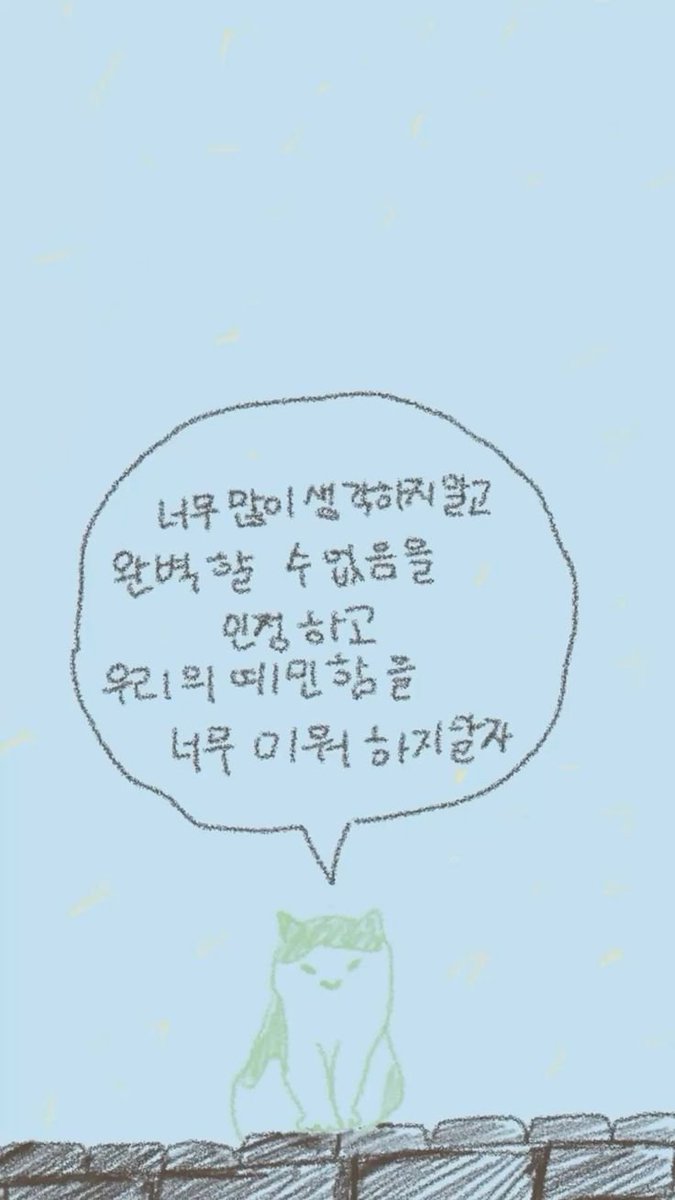 너무 많이 생각하지 말고
완벽할 수 없음을
인정하고
우리의 예민함을
너무 미워하지말자